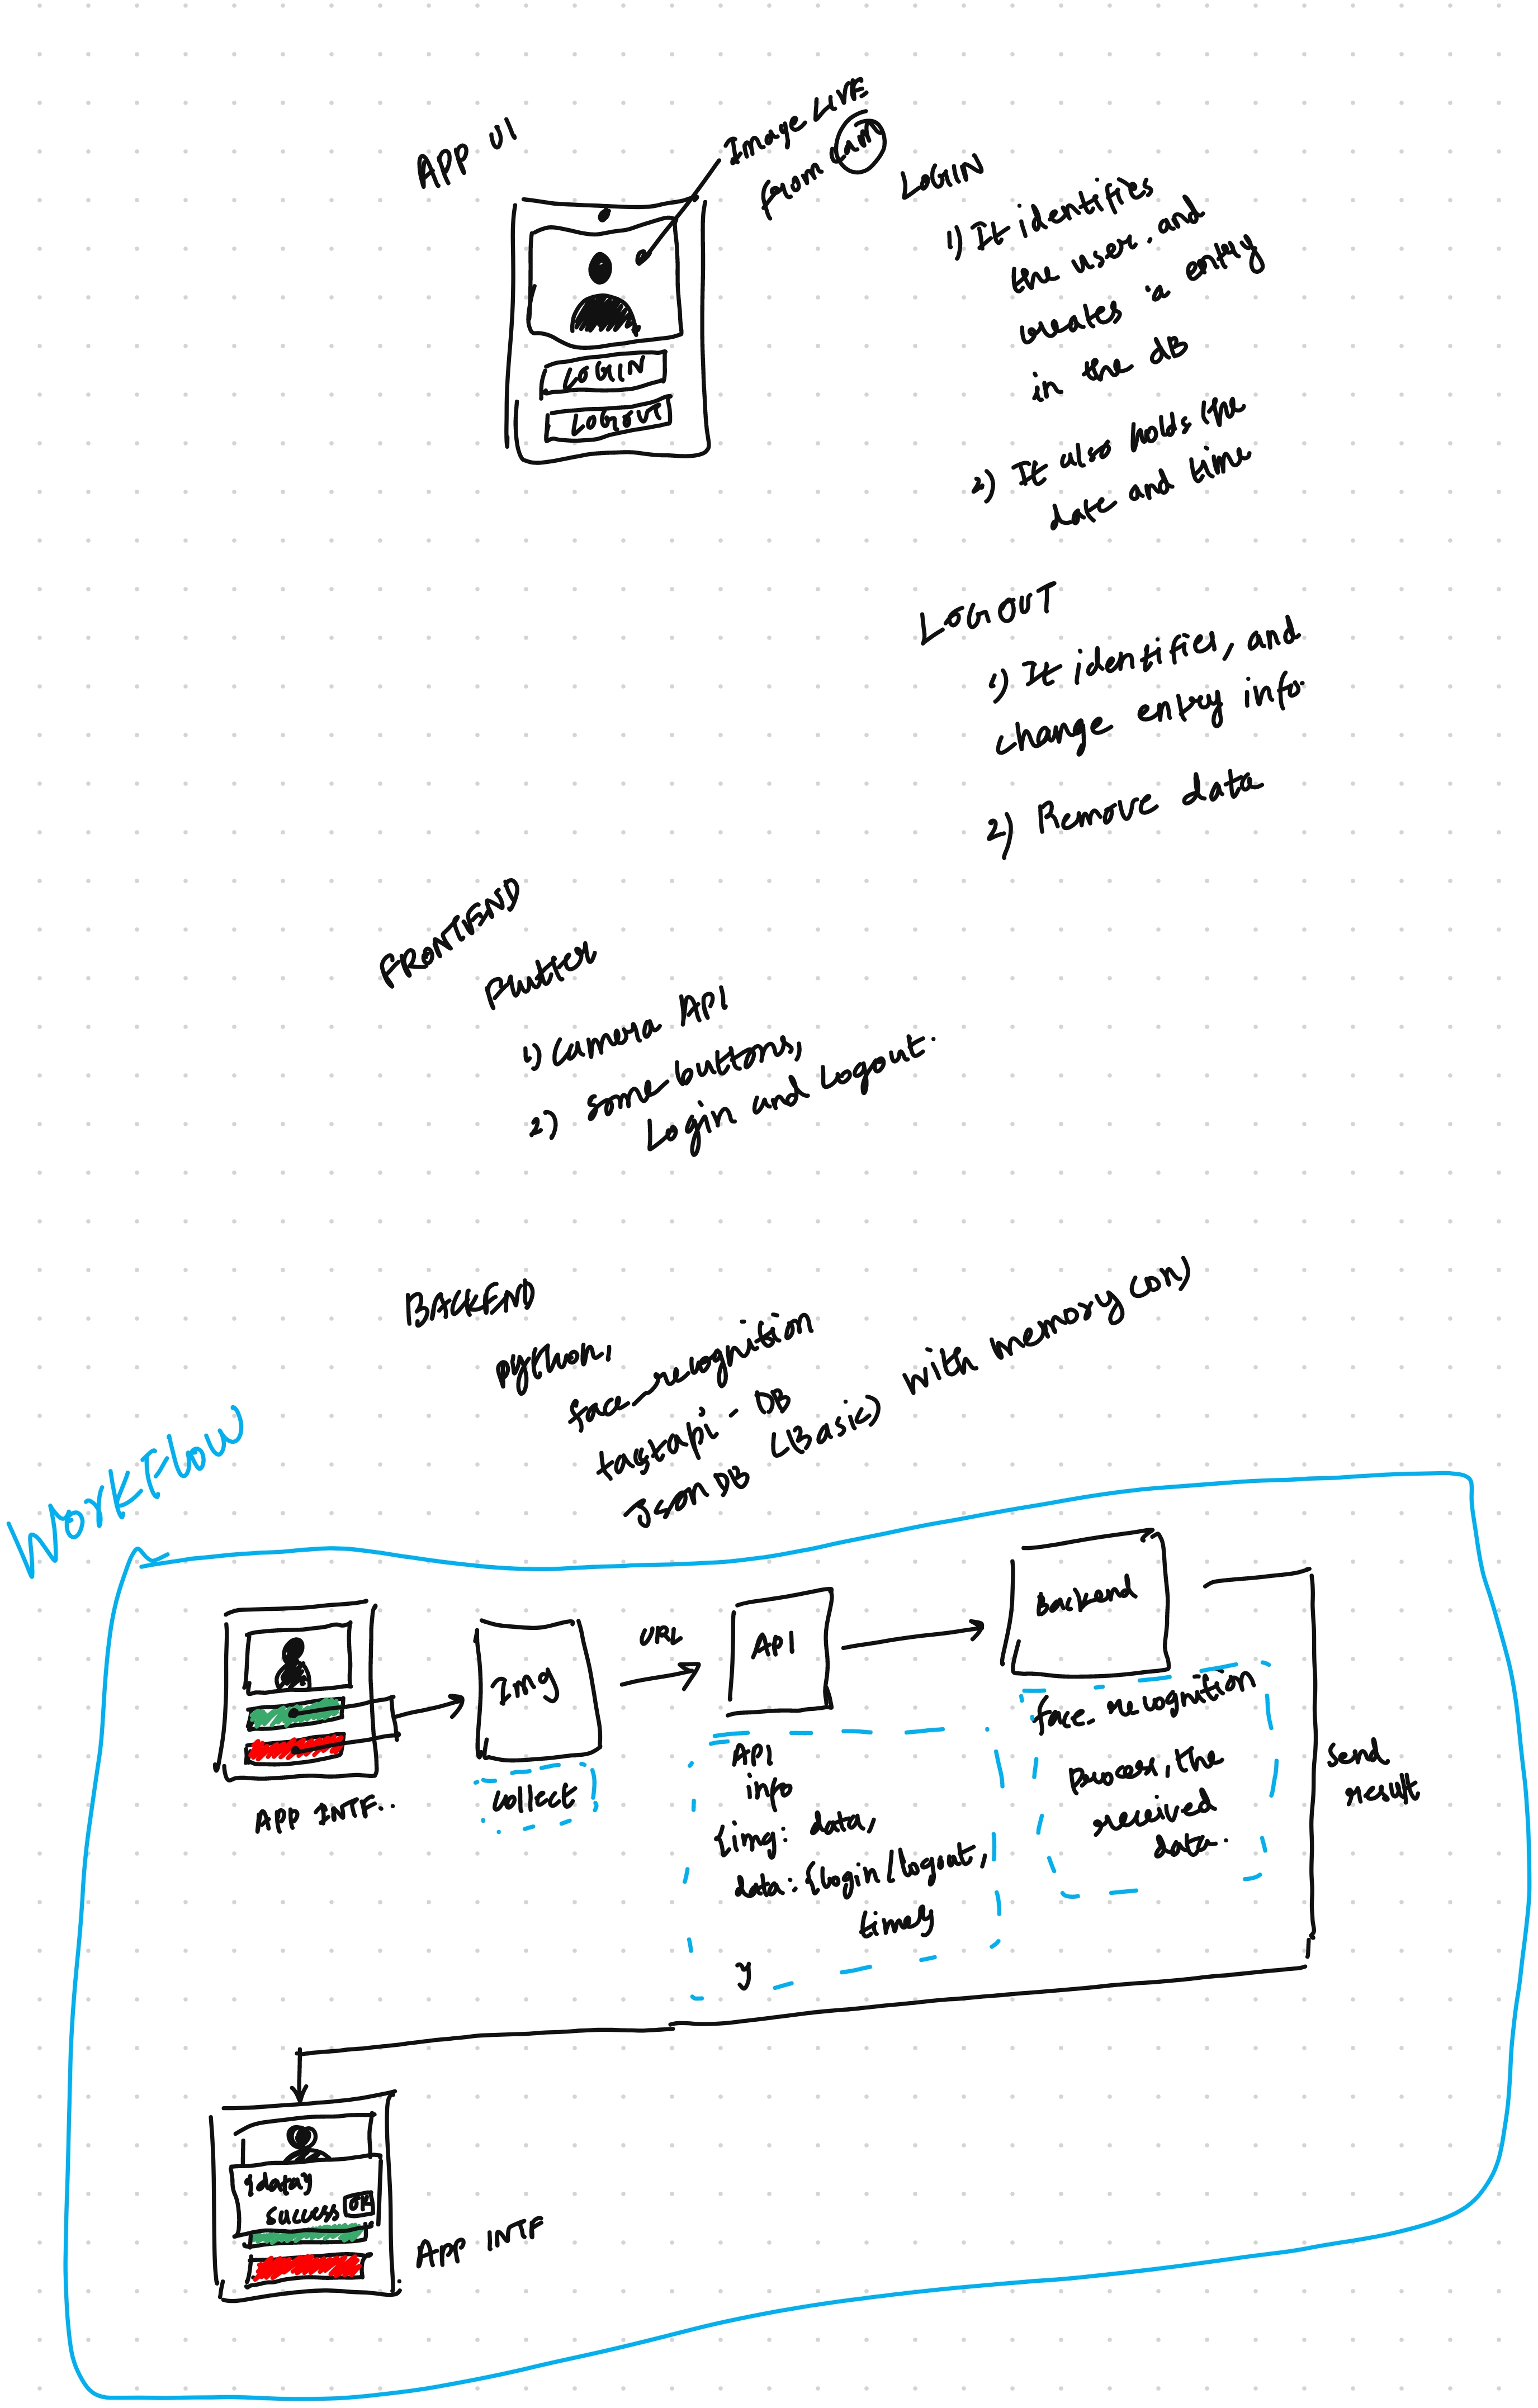 APP UI
Image LIVE
from Cam
LOGIN
LOGOUT
LOGIN
1) It identifies
the user, and
creates a entry
in the dB
2) It also holds the
date and time
LOGOUT
1) It identifies, and
change entry info.
2) Remove data
FRONTEND
Flutter
1) Camera API
2) Some buttons,
Login and Logout.
BACKEND
python,
face_recognition
fastapi - DB
Json DB (Basic) with memory con)
WorkFlow
APP INTF.
Img
collect
URL
API
API
info
{img: data,
data: {login/logout,
time}
}
Backend
face_recognition
process, the
received
data.
send
result
{data}
success OK
APP INTF